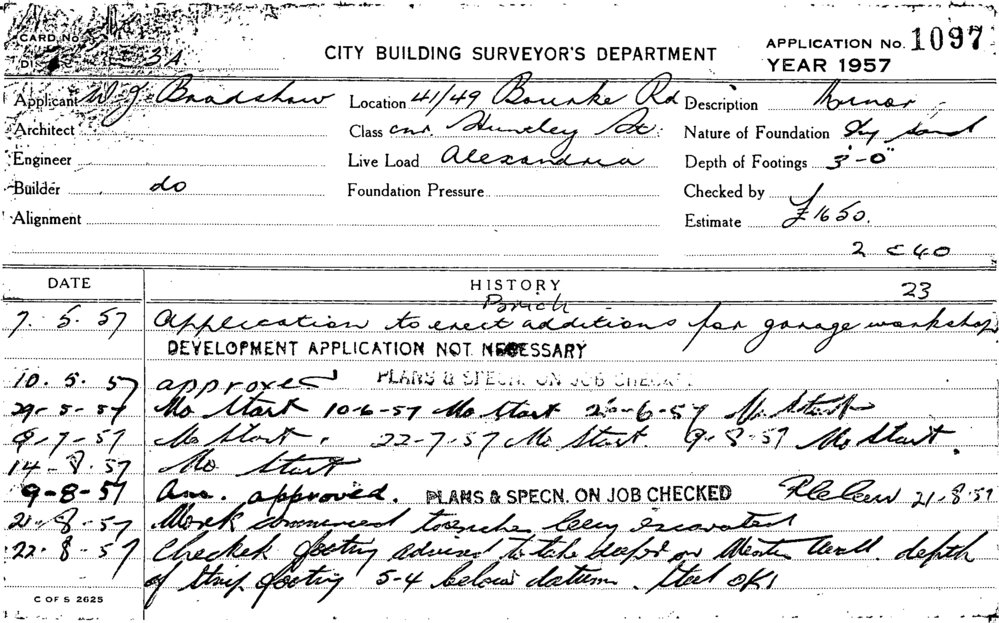 CARD No.
3A
CITY BUILDING SURVEYOR'S DEPARTMENT
APPLICATION No. 1097
YEAR 1957
Applicant W. J. Bradshaw
Location 41/49 Bourke Rd
Description Minor
Architect
Class cnr Huntley St.
Nature of Foundation Dry sand
Engineer
Live Load Alexandria
Depth of Footings 3'-0"
Builder do
Foundation Pressure
Checked by
Alignment
Estimate £1650.
2 C 40
DATE
HISTORY
23
Brick
7. 5. 57 Application to erect additions for garage workshop
DEVELOPMENT APPLICATION NOT NECESSARY
10. 5. 57 approved PLANS & SPECN. ON JOB CHECKED
29-5-57 No Start 10-6-57 No Start 2 -6-57 No Start
9-7-57 No Start. 22-7-57 No Start. 9-8-57 No Start.
14-8-57 No Start
9-8-57 Am. approved. PLANS & SPECN. ON JOB CHECKED 21-8-57
21-8-57 Work commenced trenches being excavated
22-8-57 Checked footing advised to take deeper on Western Wall. depth
of strip footing 5-4 below datum. Steel OK
C OF S 2625